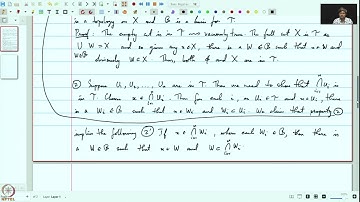 is a topology on X and B is a basis for T.
Proof: The empty set is in T vacuously true. The full set X is in T as
U W = X and so given any x∈X, there is a W ∈ B such that x∈W and
W∈B
obviously W⊂X. Thus, both ϕ and X are in T.
② Suppose U₁, U₂, ..., Uₙ are in T. Then we need to show that ⋂Uᵢ is
i=1
in T. Choose x ∈ ⋂ Uᵢ. Then for each i, as Uᵢ ∈ T and x∈Uᵢ, there
i=1
is a Wᵢ ∈ B such that x∈Wᵢ and Wᵢ ⊂ Uᵢ. We claim that property ②
implies the following ②' If x∈ ⋂ Wᵢ, where each Wᵢ ∈ B, then there is
i=1
a W∈B such that x∈W and W⊂ ⋂ Wᵢ.
i=1
NPTEL